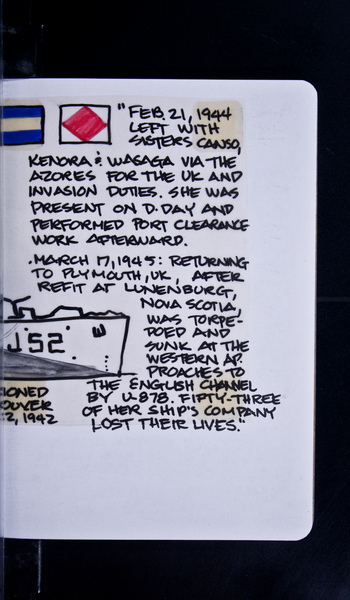 "FEB. 21, 1944
LEFT WITH
SISTERS CANSO,
KENORA & WASAGA VIA THE
AZORES FOR THE UK AND
INVASION DUTIES. SHE WAS
PRESENT ON D.DAY AND
PERFORMED PORT CLEARANCE
WORK AFTERWARD.
.MARCH 17, 1945: RETURNING
TO PLYMOUTH, UK, AFTER
REFIT AT LUNENBURG,
NOVA SCOTIA,
WAS TORPE-
DOED AND
SUNK AT THE
WESTERN AP.
PROACHES TO
THE ENGLISH CHANNEL
BY U-878. FIFTY-THREE
OF HER SHIP'S COMPANY
LOST THEIR LIVES."
J52
IONED
OUVER
2, 1942